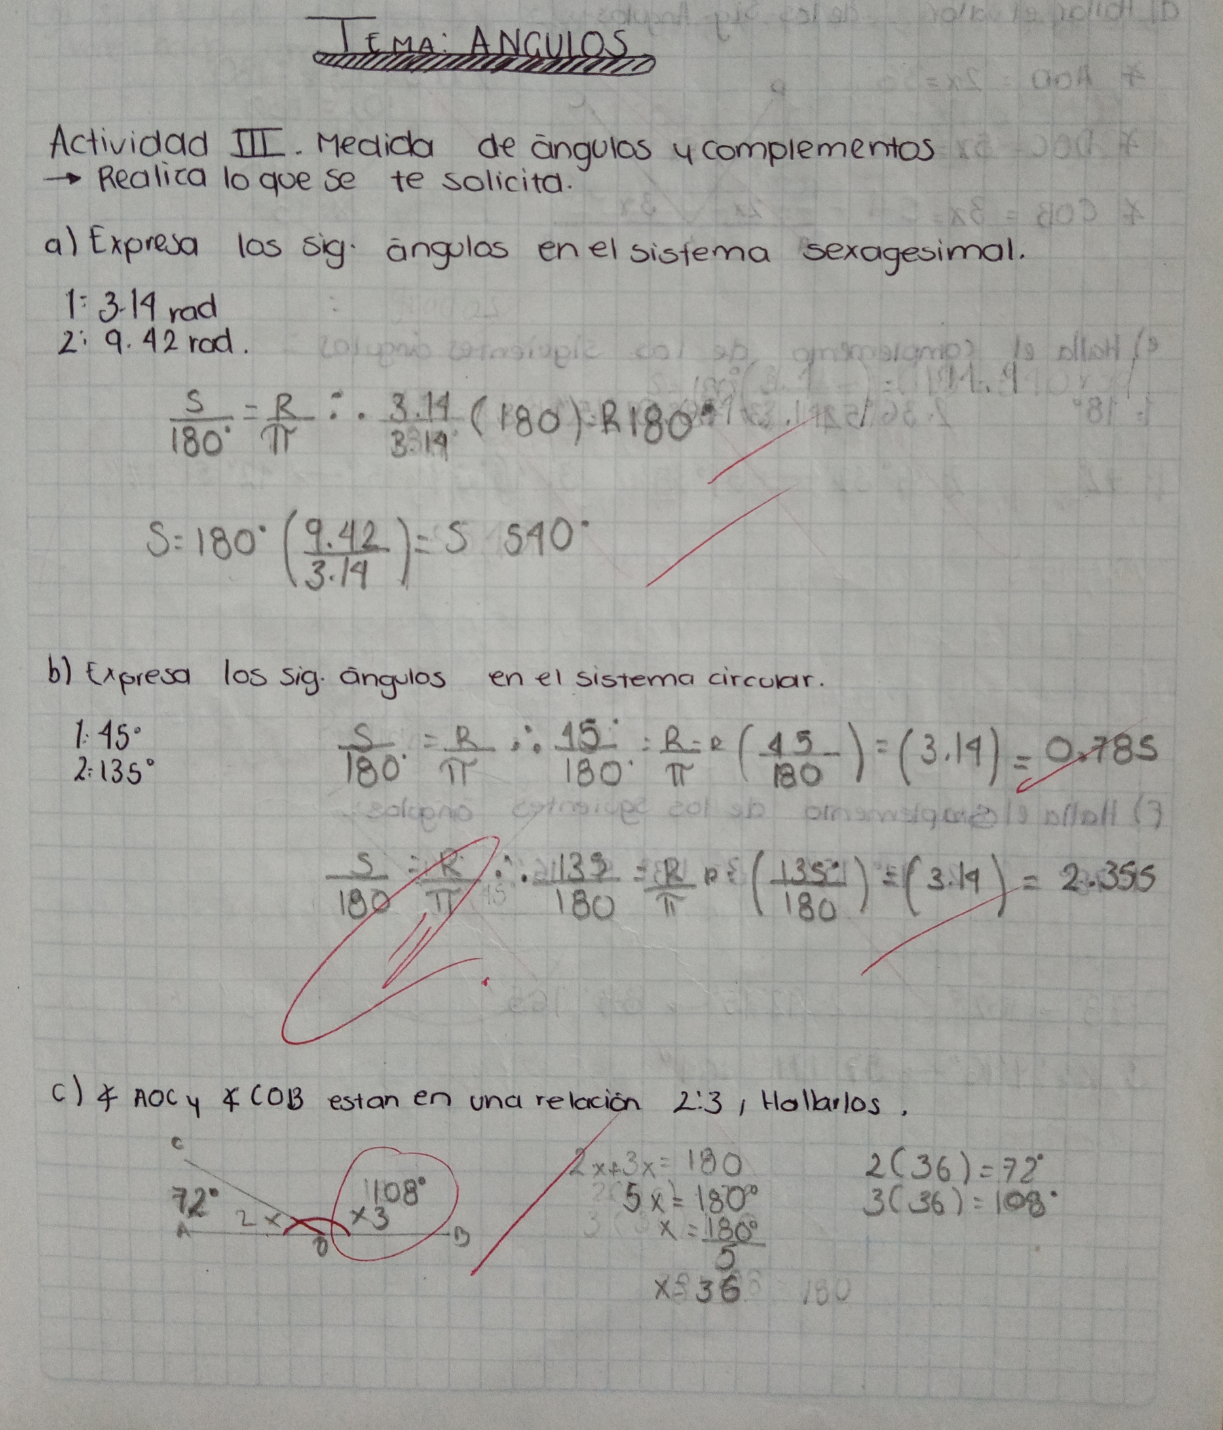 TEMA: ANGULOS
Actividad III. Medida de ángulos y complementos
→ Realica lo que se te solicita.
a) Expresa los sig. ángulos en el sistema sexagesimal.
1: 3.14 rad
2: 9.42 rad.
S/180° = R/π ∴ 3.14/3.14 (180) = R 180°
S = 180° (9.42/3.14) = S 540°
b) Expresa los sig. ángulos en el sistema circular.
1: 45°
2: 135°
S/180° = R/π ∴ 45°/180° = R/π = R (45/180) = (3.14) = 0.785
S/180 = R/π ∴ 135/180 = R/π R = (135°/180) = (3.14) = 2.355
c) ∡ AOC y ∡ COB estan en una relación 2:3, Hallarlos.
C
72°
108°
A
2x
x3
O
B
2x+3x = 180
5x = 180°
x = 180°/5
x = 36
2(36) = 72°
3(36) = 108°
180